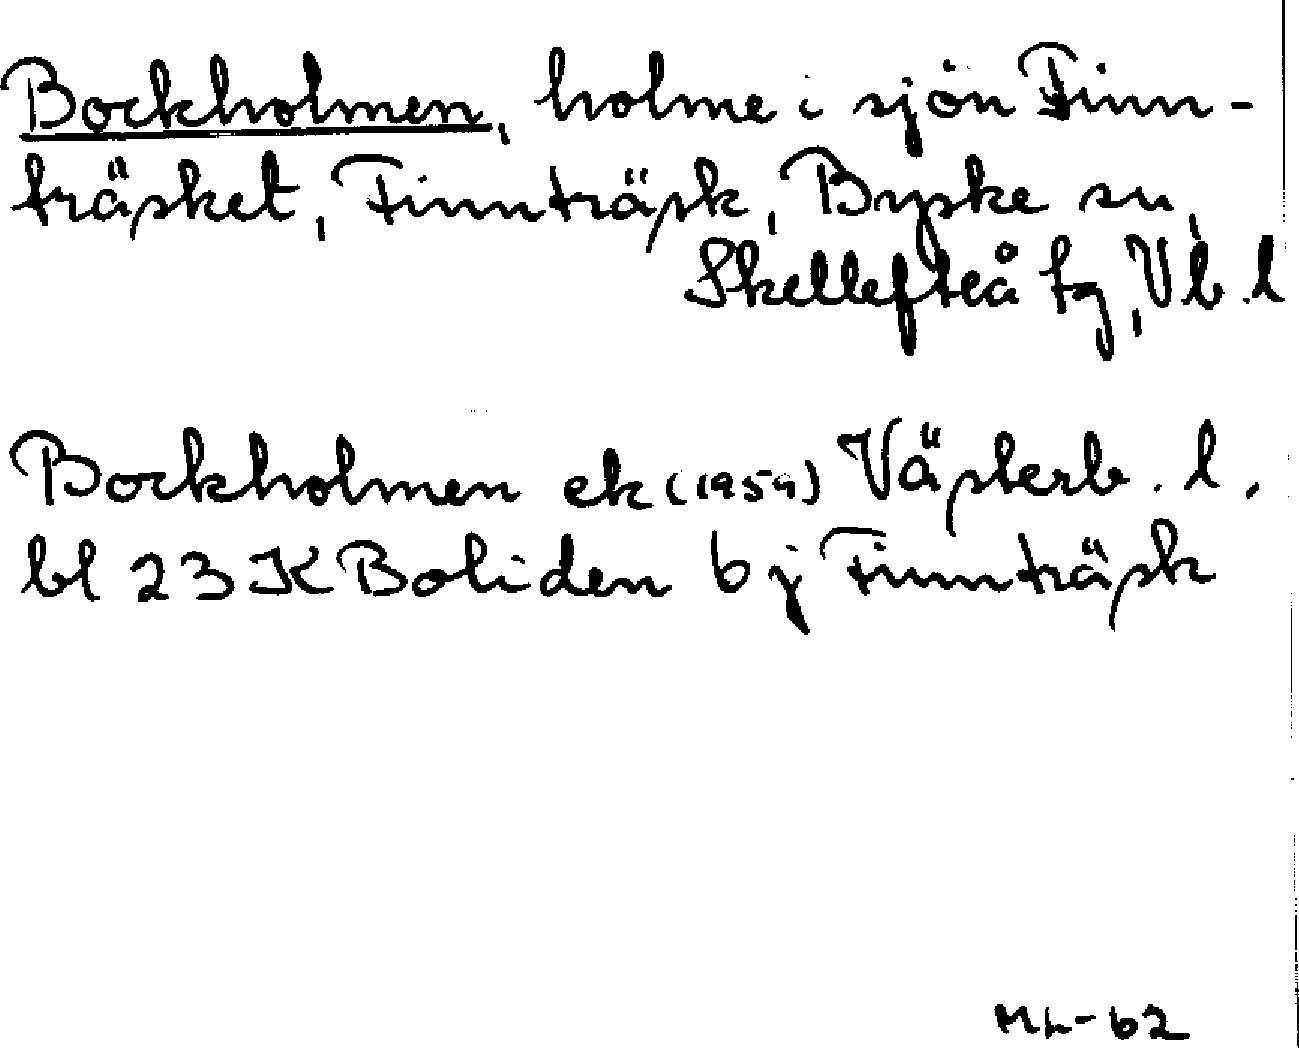 Bockholmen, holme i sjön Finn-
träsket, Finnträsk, Byske sn,
Skellefteå tg, Vb. l
Bockholmen ek (1959) Västerb. l.
bl 23 K Boliden by Finnträsk
ML-62